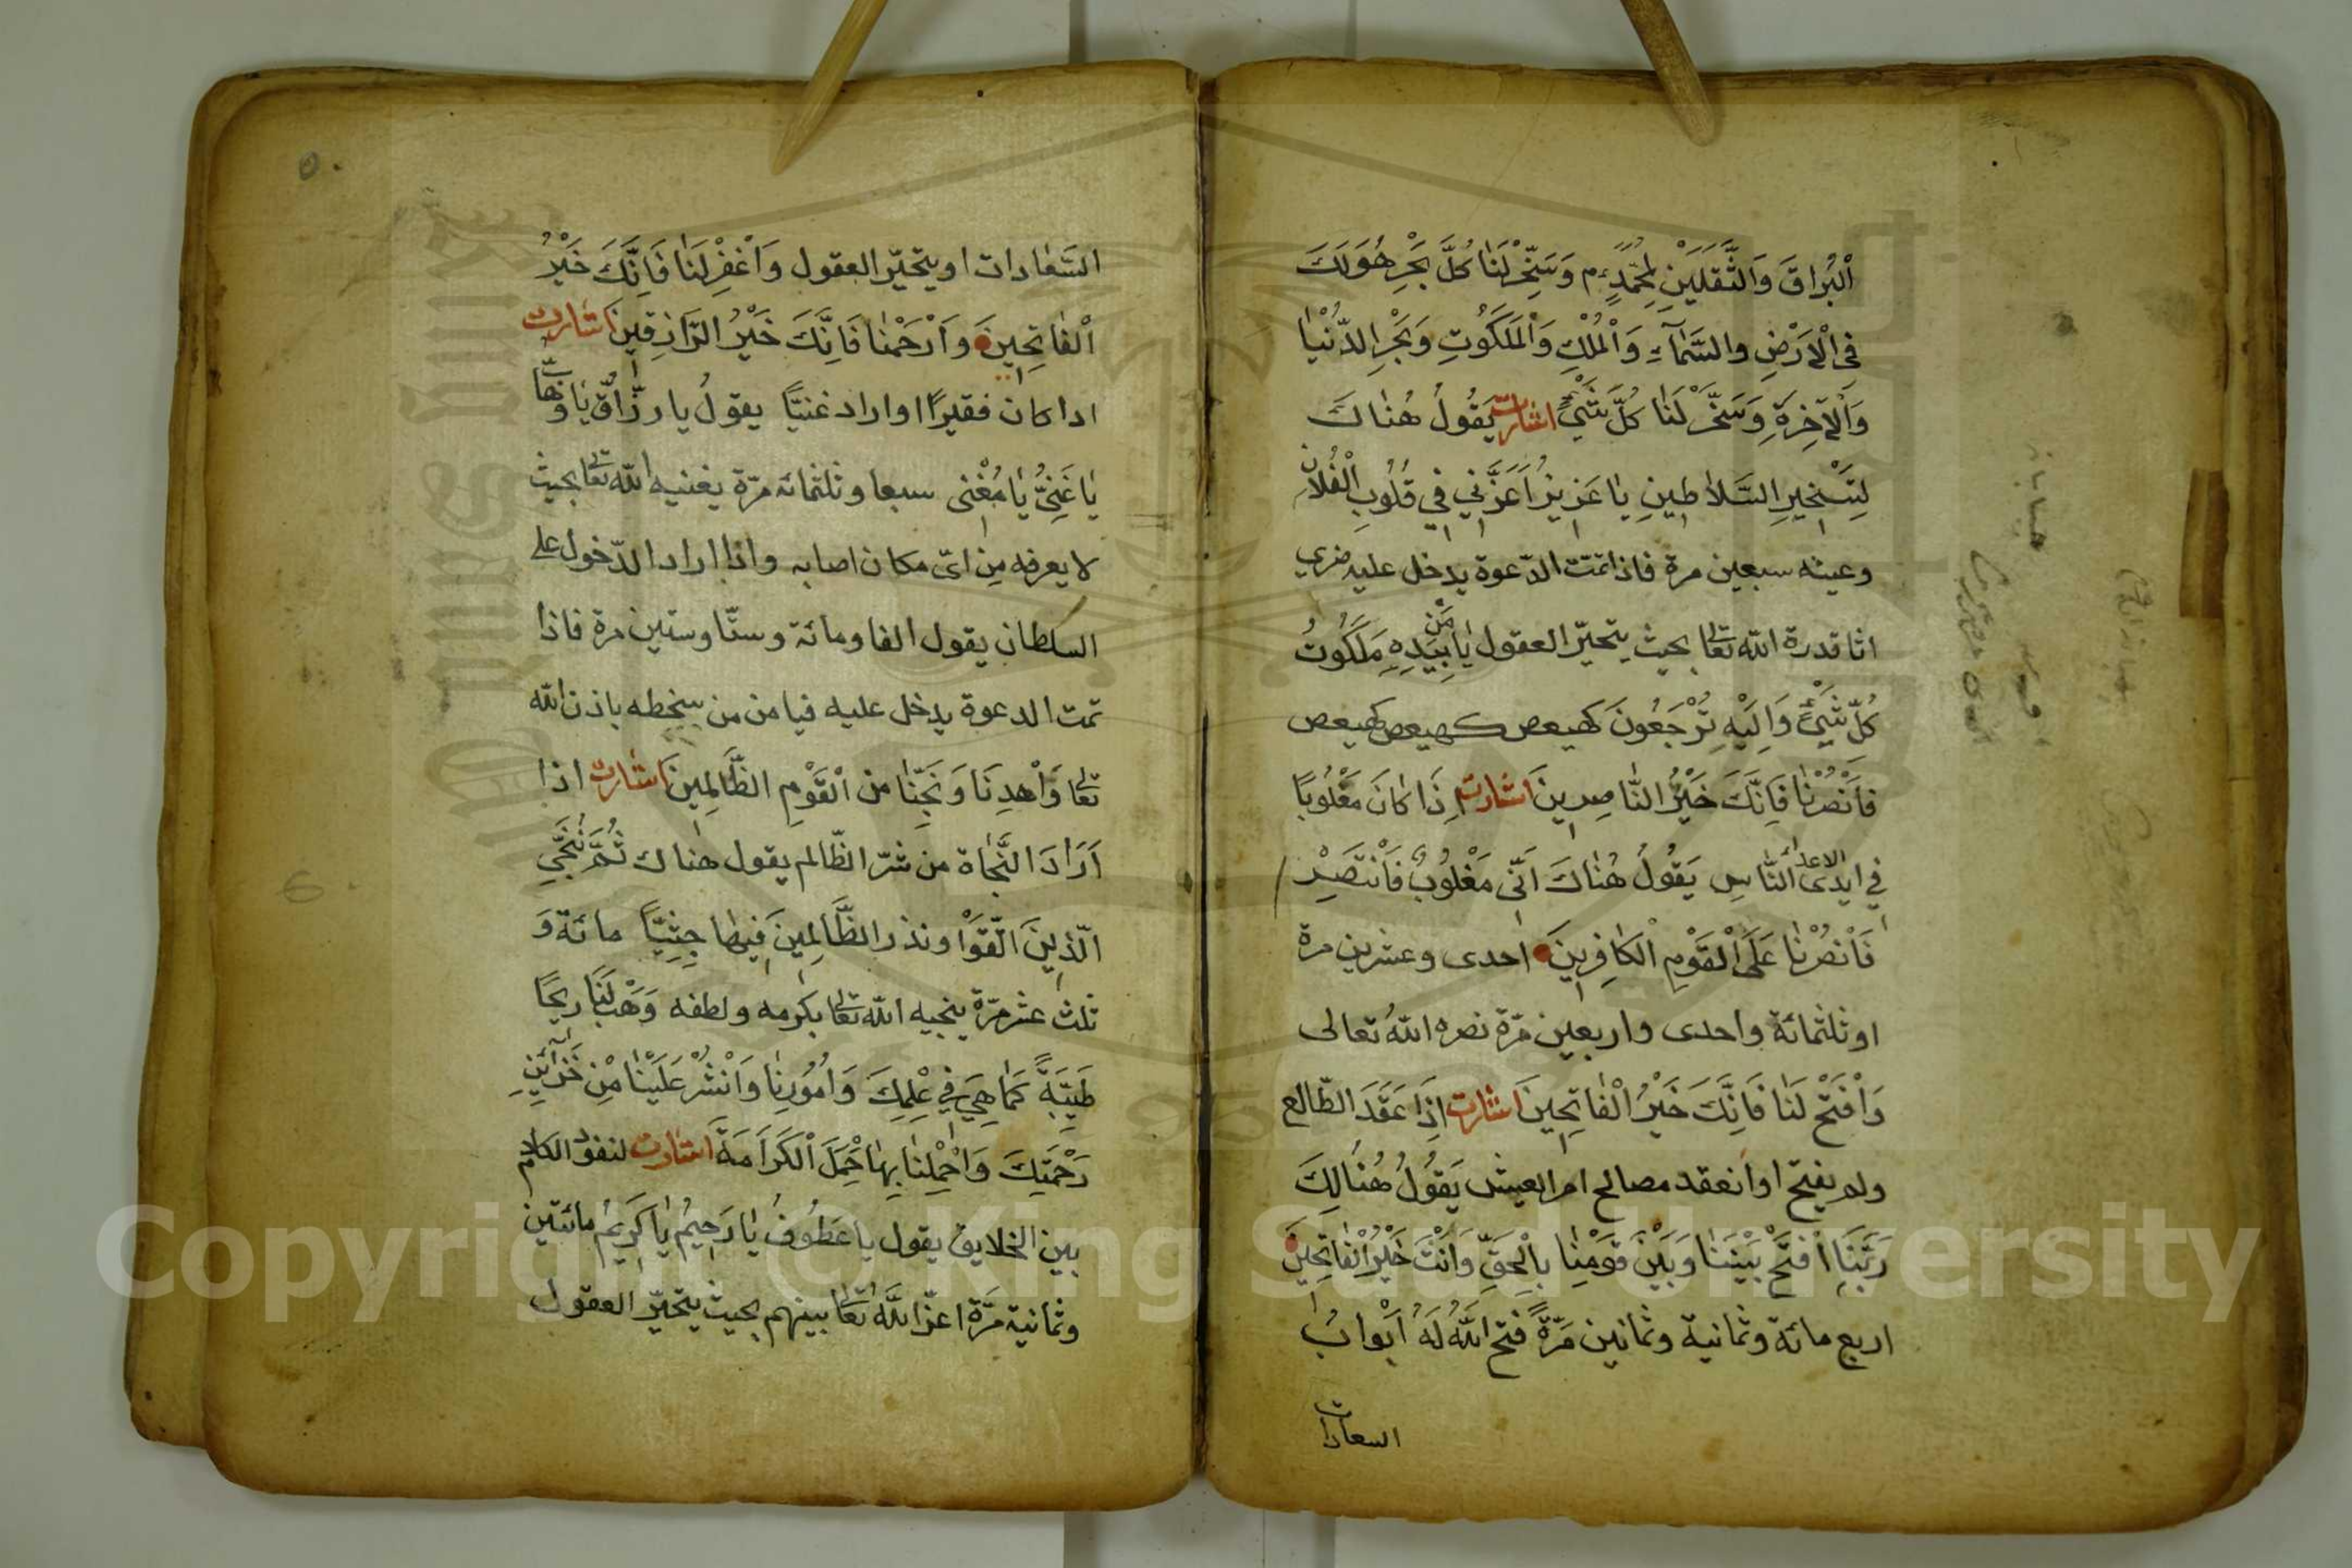 اَلْبُرَاقَ وَالثَّقَلَيْنِ لِمُحَمَّدٍ م وَسَخِّرْ لَنَا كُلَّ بَحْرٍ هُوَ لَكَ
فِي الْاَرْضِ والسَّمَآءِ وَالْمُلْكِ وَالْمَلَكُوتِ وَبَحْرِ الدُّنْيَا
وَالْآخِرَةِ وَسَخِّرْ لَنَا كُلَّ شَيْءٍ اشارت يَقُولُ هُنَاكَ
لِتَسْخِيرِ السَّلَاطِينِ يَا عَزِيزُ اَعِزَّنِي فِي قُلُوبِ الْفُلَانِ
وعينه سبعين مرة فاذا تمّت الدّعوة يدخل عليه فيري
اثا قدرة الله تعا بحيث يتحيّر العقول يَا مَنْ بِيَدِهِ مَلَكُوتُ
كُلِّ شَيْءٍ وَاِلَيْهِ تُرْجَعُونَ كهيعص كهيعص كهيعص
فَانْصُرْنَا فَاِنَّكَ خَيْرُ النَّاصِرِينَ اشارت اِذَا كَانَ مَغْلُوبًا
فِي ايدى الاعداء النَّاسِ يَقُولُ هُنَاكَ اَنِّي مَغْلُوبٌ فَانْتَصِرْ
فَانْصُرْنَا عَلَى الْقَوْمِ الْكَافِرِينَ احدى وعشرين مرة
او ثلثمائة واحدى واربعين مرّة نصره اللهُ تعالى
وَافْتَحْ لَنَا فَاِنَّكَ خَيْرُ الْفَاتِحِينَ اشارت اِذَا عَقَدَ الطّالع
ولم يفتح او انعقد مصالح امر العيش يَقُولُ هُنَالِكَ
رَبَّنَا افْتَحْ بَيْنَنَا وَبَيْنَ قَوْمِنَا بِالْحَقِّ وَاَنْتَ خَيْرُ الْفَاتِحِينَ
اربع مائة وثمانية وثمانين مَرّةً فتح اللهُ لَهُ اَبْوابُ
السعادات
السَّعَادات او يتحيّر العقول وَاغْفِرْ لَنَا فَاِنَّكَ خَيْرُ
الْفَاتِحِينَ وَارْحَمْنَا فَاِنَّكَ خَيْرُ الرَّازِقِينَ اشارت
ادا كان فقيرًا او اراد غنيّا يقولُ يا رزّاقُ يَا وَهّاب
يَا غَنِيُّ يَا مُغْنِى سبعا وثلثمائة مرّة يغنيه الله تعا بحيث
لا يعرفه مِن اىّ مكان اصابه واذا اراد الدّخول على
السلطان يقول الفا ومائة وستّا وستين مرة فاذا
تمت الدعوة يدخل عليه فيامن من سخطه باذن الله
تعا وَاهْدِنَا وَنَجِّنَا من الْقَوْمِ الظَّالِمِينَ اشارت اذا
اَرَادَ النَّجَاة من شرّ الظّالم يقول هناك ثُمَّ نُنَجِّي
الّذِينَ اتَّقَوْا ونذر الظَّالِمِينَ فِيهَا جِثِيًّا مائة وَ
ثلث عشر مرّة ينجيه الله تعا بكرمه ولطفه وَهَبْ لَنَا ريحًا
طَيِّبَةً كَمَا هِيَ فِي عِلْمِكَ وَاُمُورِنَا وَانْشُرْ عَلَيْنَا مِنْ خَزَائِنِ
رَحْمَتِكَ وَاحْمِلْنَا بِهَا حَمْلَ الْكَرَامَةِ اشارت لنفوذ الكلام
بين الخلايق يقول يا عَطُوفُ يَا رَحِيمُ يَا كَرِيمُ مائتين
وثمانية مرّة اعزّ اللهُ تعا بينهم بحيث يتحيّر العقول
Copyright © King Saud University